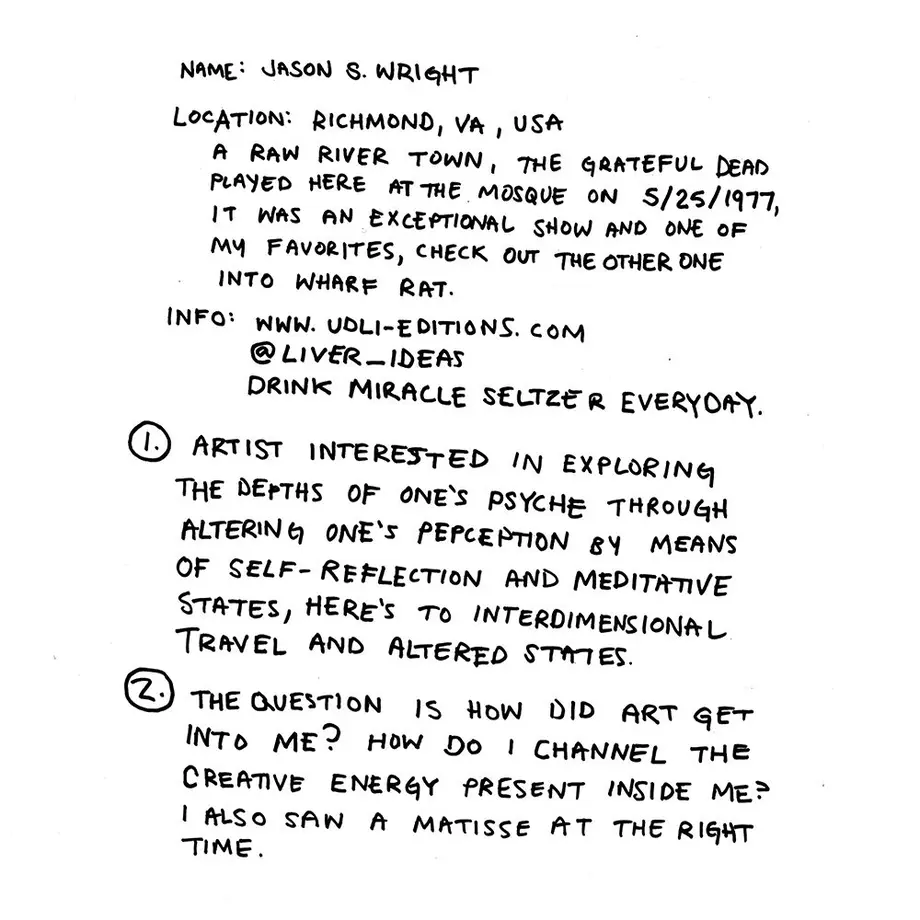 NAME: JASON S. WRIGHT
LOCATION: RICHMOND, VA, USA
A RAW RIVER TOWN, THE GRATEFUL DEAD
PLAYED HERE AT THE MOSQUE ON 5/25/1977,
IT WAS AN EXCEPTIONAL SHOW AND ONE OF
MY FAVORITES, CHECK OUT THE OTHER ONE
INTO WHARF RAT.
INFO: WWW.UDLI-EDITIONS.COM
@LIVER_IDEAS
DRINK MIRACLE SELTZER EVERYDAY.
1. ARTIST INTERESTED IN EXPLORING
THE DEPTHS OF ONE'S PSYCHE THROUGH
ALTERING ONE'S PEPCEPTION BY MEANS
OF SELF-REFLECTION AND MEDITATIVE
STATES, HERE'S TO INTERDIMENSIONAL
TRAVEL AND ALTERED STATES.
2. THE QUESTION IS HOW DID ART GET
INTO ME? HOW DO I CHANNEL THE
CREATIVE ENERGY PRESENT INSIDE ME?
I ALSO SAW A MATISSE AT THE RIGHT
TIME.